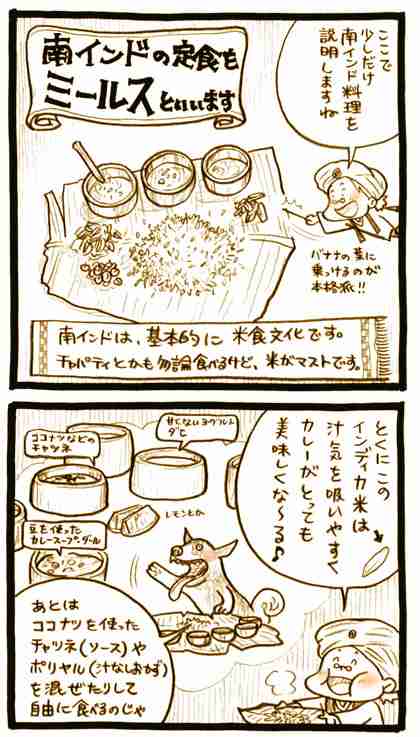 南インドの定食を
ミールスといいます
ここで
少しだけ
南インド料理を
説明しますね
バナナの葉に
乗っけるのが
本格派!!
南インドは、基本的に米食文化です。
チャパティとかも勿論食べるけど、米がマストです。
とくにこの
インディカ米は
汁気を吸いやすく
カレーがとっても
美味しくな〜る♪
甘くないヨーグルト
ダヒ
ココナツなどの
チャツネ
レモンとか
豆を使った
カレースープ・ダール
あとは
ココナツを使った
チャツネ(ソース)や
ポリヤル(汁なしおかず)
を混ぜたりして
自由に食べるのじゃ